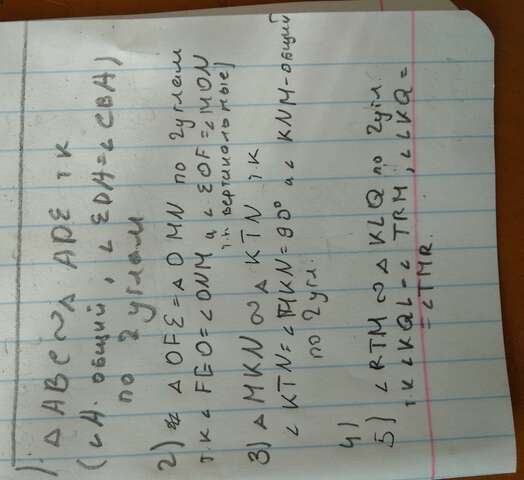 1) △ ABC ∾ △ ADE т.к
(∠A. общий, ∠ EDA = ∠ CBA)
по 2 углам
2) △ OFE = △ OMN по 2 углам
т.к ∠ FEO = ∠ ONM а ∠ EOF = ∠ MON
т.к вертикальные)
3) △ MKN ∾ △ KTN т.к
∠ KTN = ∠ MKN = 90° а ∠ KNM - общий
по 2 угл.
4)
5) ∠ RTM ∾ △ KLQ по 2 угл.
т.к ∠ KQL = ∠ TRM, ∠ LKQ =
= ∠ TMR.